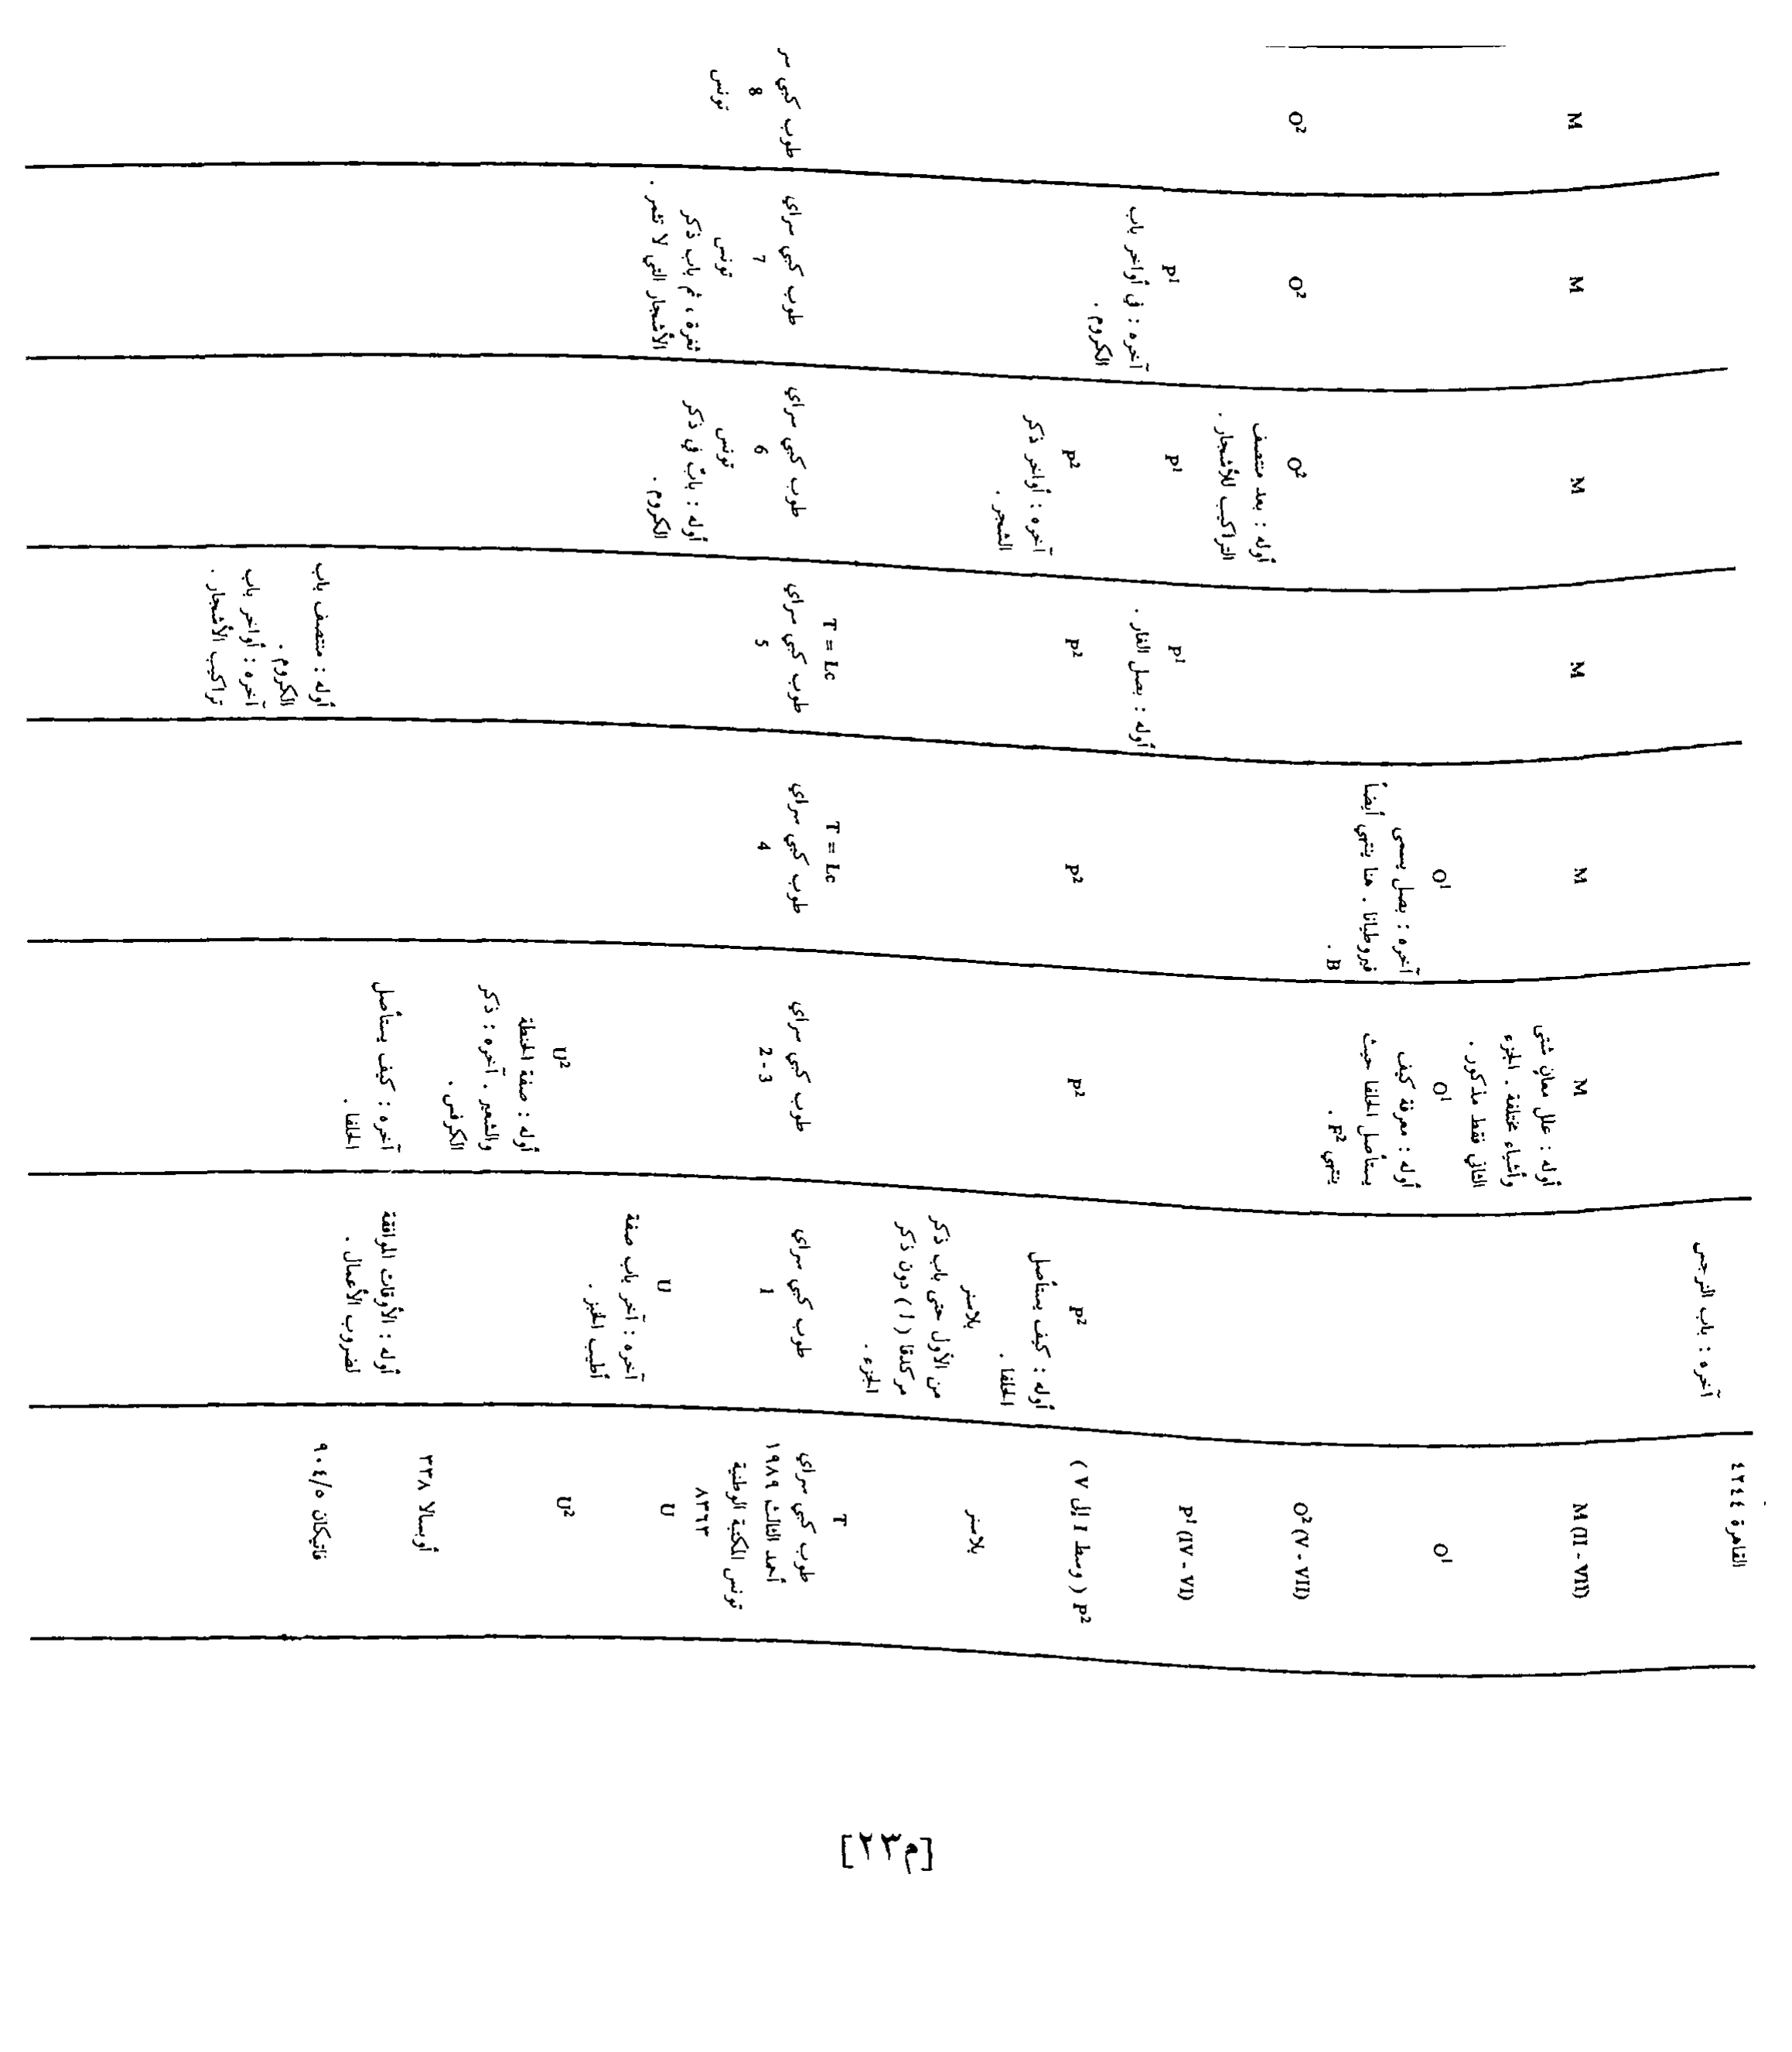 القاهرة ٤٢٤٤
آخره : باب النرجس
M (II - VII)
M
أوله : علل معانٍ شتى
وأشياء مختلفة . الجزء
الثاني فقط مذكور .
M
M
M
M
M
O¹
O¹
أوله : معرفة كيف
يستأصل الحلفا حيث
ينتهي F² .
O¹
آخره : بصل يسمى
فيروطيانا . هنا ينتهي أيضاً
B .
O² (V - VII)
O²
أوله : بعد منتصف
التراكيب للأشجار .
O²
O²
P¹ (IV - VI)
P¹
أوله : بصل الفار .
P¹
P¹
آخره : في أواخر باب
الكروم .
P² ( وسط I إلى V )
P²
أوله : كيف يستأصل
الحلفا .
P²
P²
P²
P²
آخره : أواخر ذكر
الشجر .
بلاسنر
بلاسنر
من الأول حتى باب ذكر
مركدقا ( ١ ) دون ذكر
الجزء .
T
طوب كبي سراي
أحمد الثالث ١٩٨٩
تونس المكتبة الوطنية
٨٣٦٣
طوب كبي سراي
1
طوب كبي سراي
2 - 3
T = Lc
طوب كبي سراي
4
T = Lc
طوب كبي سراي
5
طوب كبي سراي
6
تونس
أوله : بابٌ في ذكر
الكروم .
طوب كبي سراي
7
تونس
ثغرة ، ثم باب ذكر
الأشجار التي لا تثمر .
طوب كبي سر
8
تونس
U
U
آخره : آخر باب صفة
أطيب الخبز .
U²
U²
أوله : صفة الحنطة
والشعير . آخره : ذكر
الكرفس .
أوبسالا ٣٣٨
أوله : الأوقات الموافقة
لضروب الأعمال .
آخره : كيف يستأصل
الحلفا .
فاتيكان ٩٠٤/٥
أوله : منتصف باب
الكروم .
آخره : أواخر باب
تراكيب الأشجار .
[م٢٣]